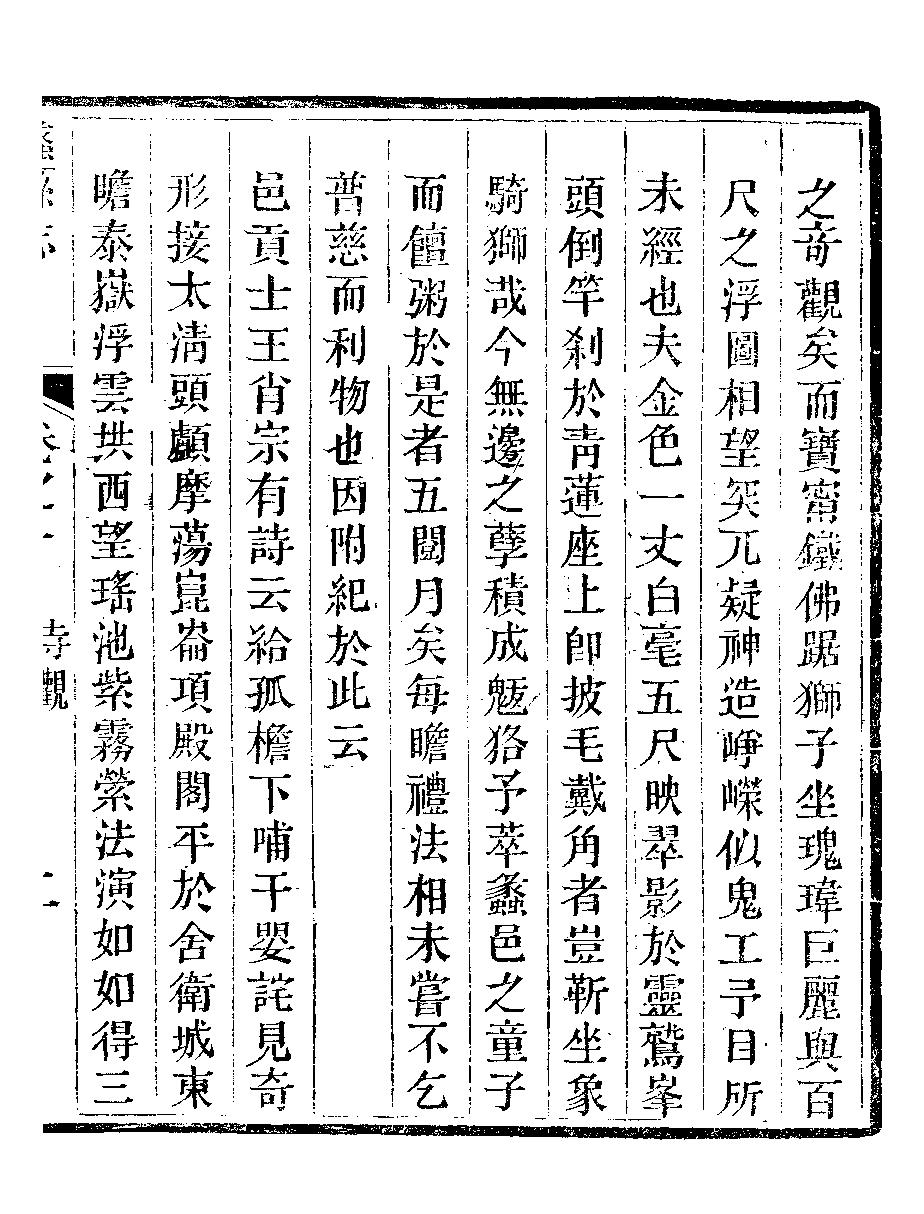 之奇觀矣而寶甯鐵佛踞獅子坐瑰瑋巨麗與百
尺之浮圖相望突兀疑神造崢嶸似鬼工予目所
未經也夫金色一丈白毫五尺映翠影於靈鷲峯
頭倒竿刹於青蓮座上卽披毛戴角者豈靳坐象
騎獅哉今無邊之孽積成魃狢予萃蠡邑之童子
而饘粥於是者五閱月矣每瞻禮法相未嘗不乞
普慈而利物也因附紀於此云
邑貢士王肖宗有詩云給孤檐下哺千嬰詫見奇
形接太淸頭顱摩蕩崑崙項殿閣平於舍衛城東
瞻泰嶽浮雲拱西望瑤池紫霧縈法演如如得三
蠡縣志
卷之
寺觀